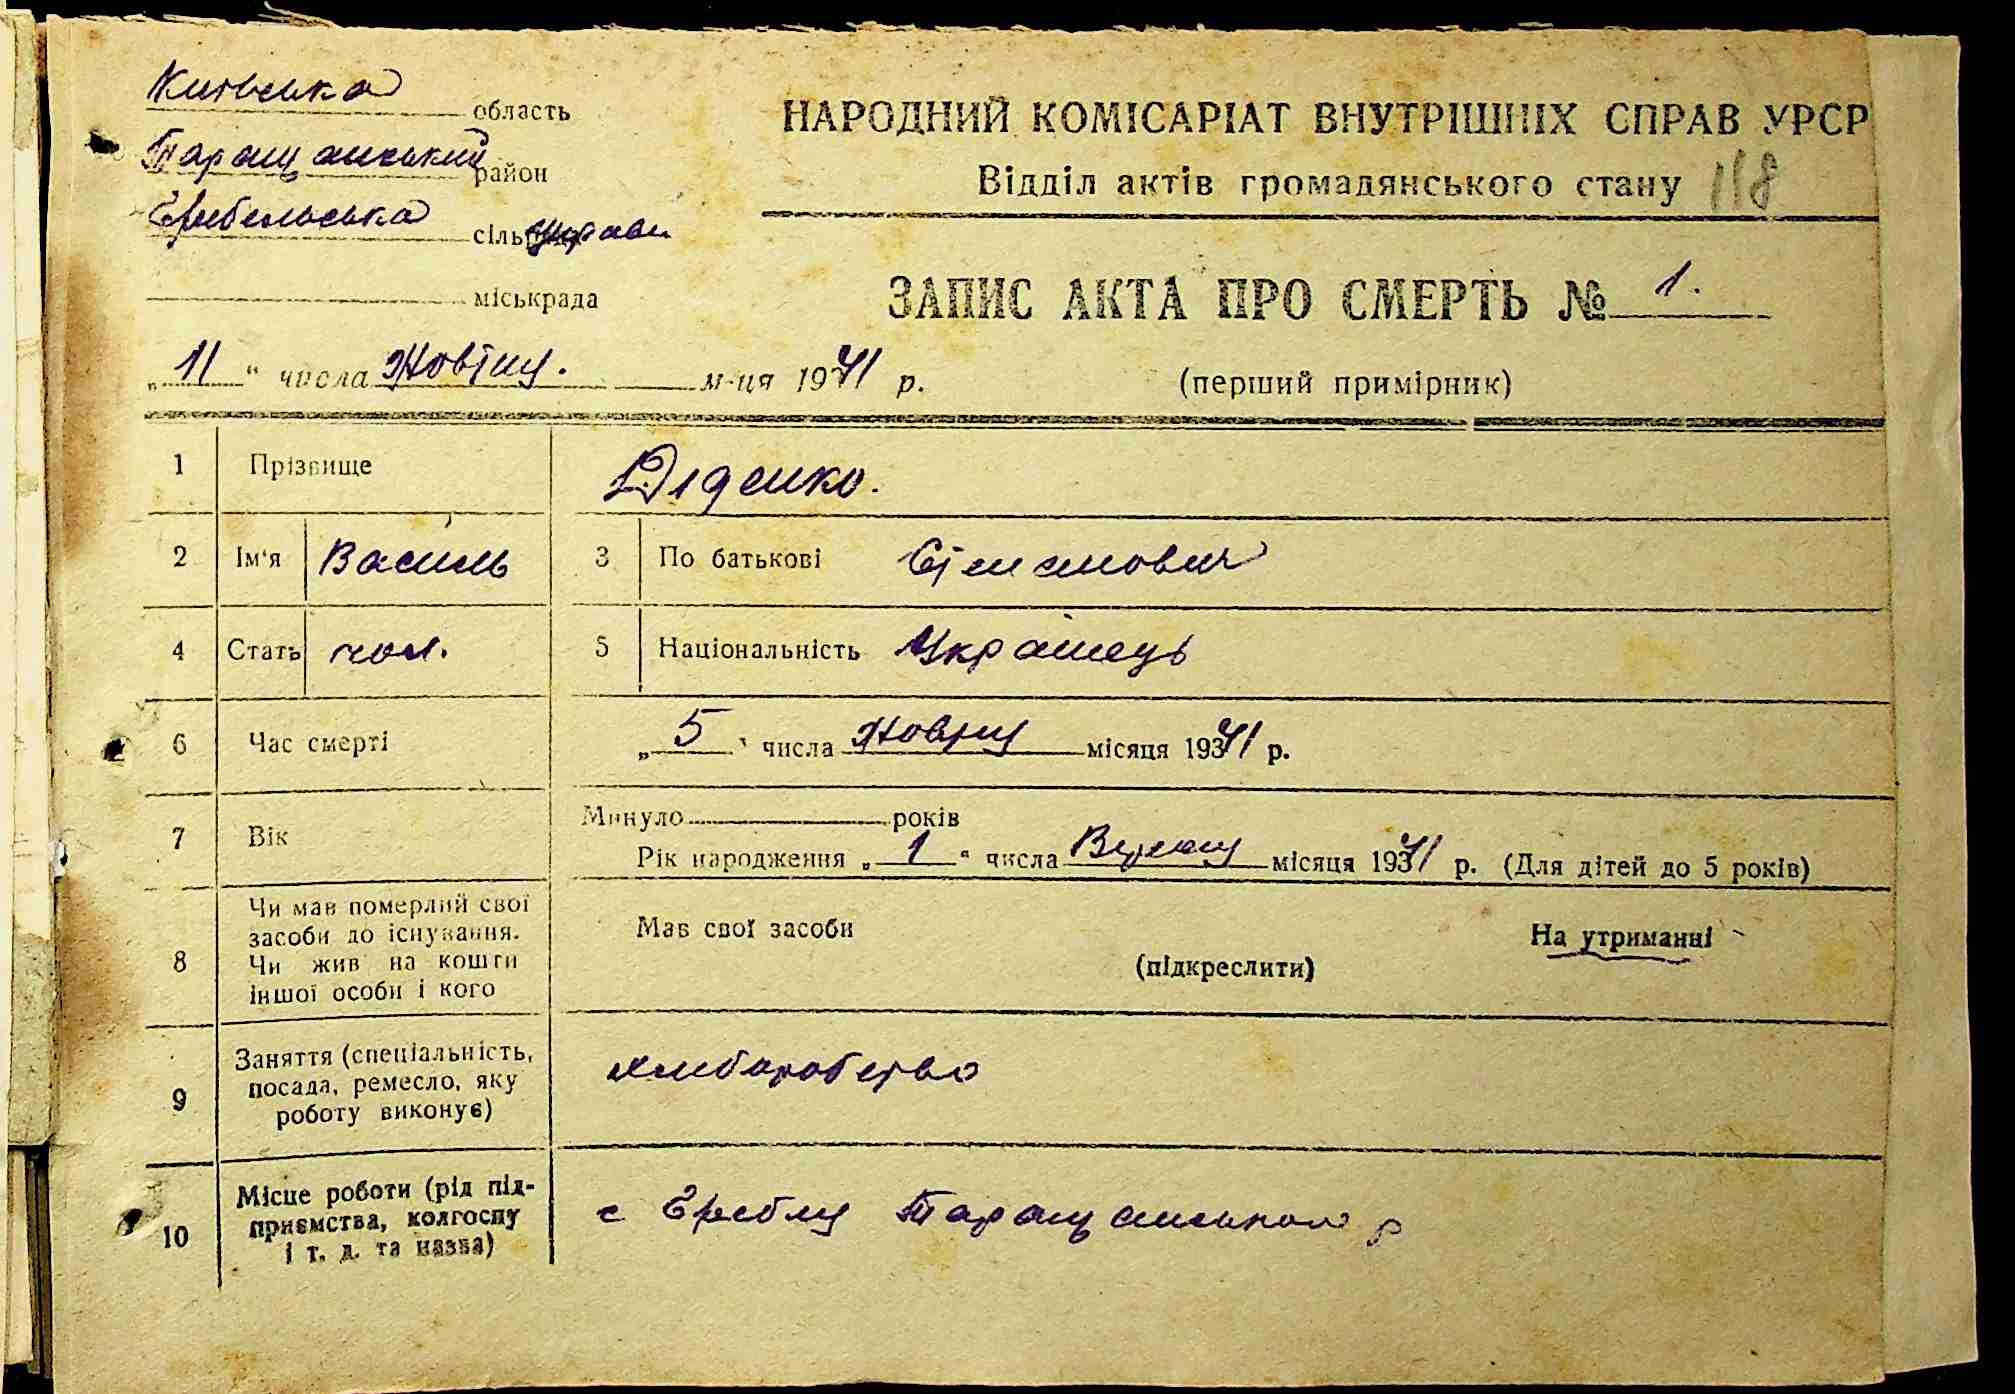 Київська область
НАРОДНИЙ КОМІСАРІАТ ВНУТРІШНІХ СПРАВ УРСР
Таращанський район
Відділ актів громадянського стану 118
Гребельська сіль управи
міськрада
ЗАПИС АКТА ПРО СМЕРТЬ № 1.
„11" числа Жовтня. м-ця 1941 р.
(перший примірник)
1 Прізвище Діденко.
2 Ім'я Василь 3 По батькові Степанович
4 Стать чол. 5 Національність Українець
6 Час смерті „5" числа Жовтня місяця 1941 р.
7 Вік Минуло років
Рік народження „1" числа Вересня місяця 1941 р. (Для дітей до 5 років)
8 Чи мав померлий свої
засоби до існування.
Чи жив на кошти
іншої особи і кого
Мав свої засоби
(підкреслити)
На утриманні
9 Заняття (спеціальність,
посада, ремесло, яку
роботу виконує)
хліборобство
10 Місце роботи (рід під-
приємства, колгоспу
і т. д. та назва)
с Греблі Таращанського р